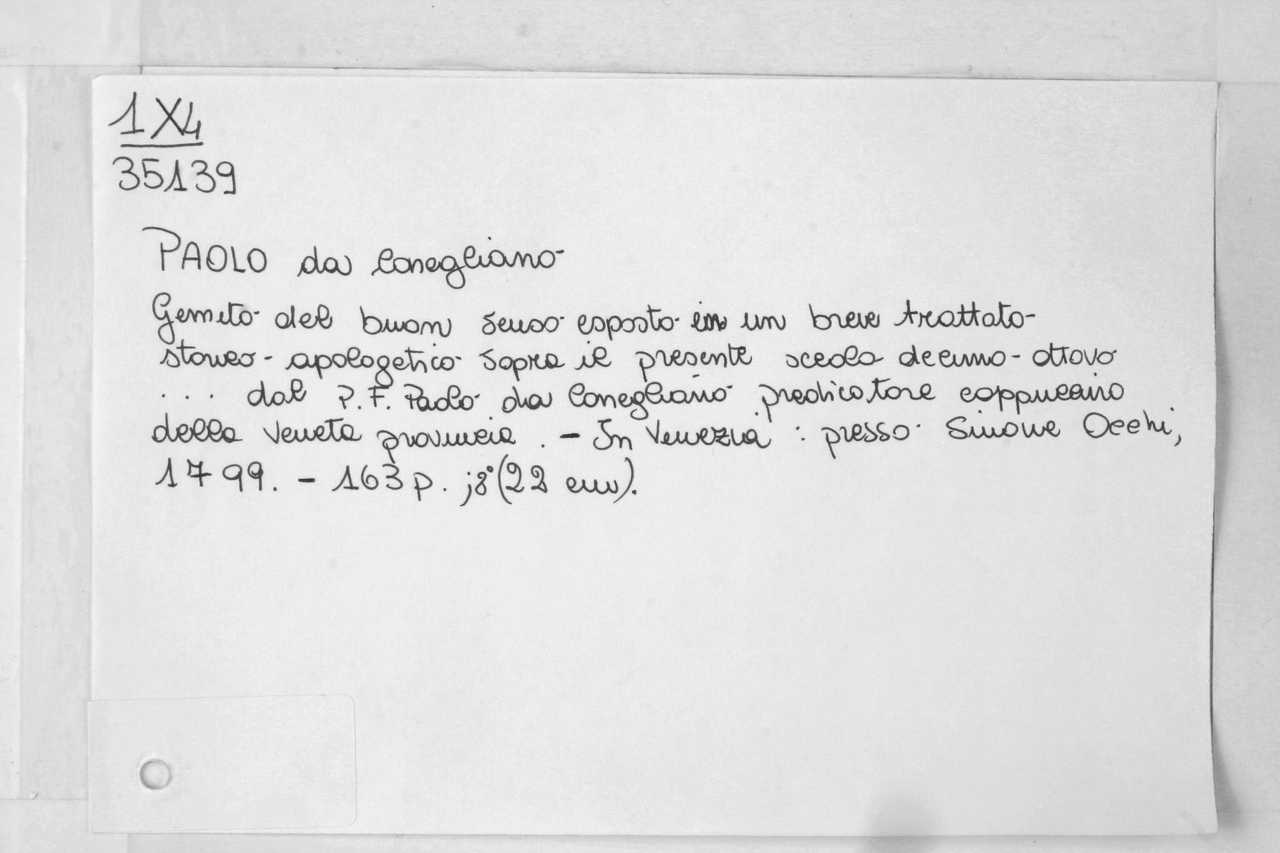 1X4
35139
PAOLO da Conegliano
Gemito del buon senso esposto in un breve trattato
storico-apologetico sopra il presente secolo decimo-ottavo
... dal P. F. Paolo da Conegliano predicatore cappuccino
della Veneta provincia. - In Venezia : presso Simone Occhi,
1799. - 163 p. ; 8° (22 cm).